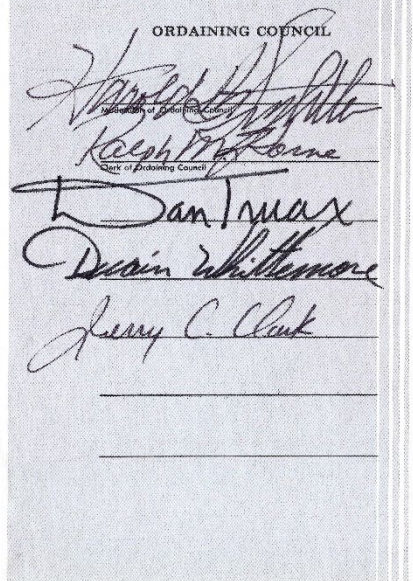 ORDAINING COUNCIL
Harold
Moderator of Ordaining Council
Ralph
Clerk of Ordaining Council
Dan Truax
Dwain Whittemore
Jerry C. Clark